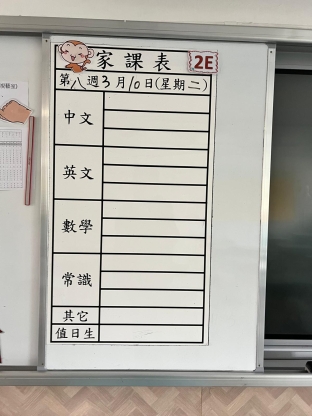 家課表 2E
第八週3月10日(星期二)
中文
英文
數學
常識
其它
值日生